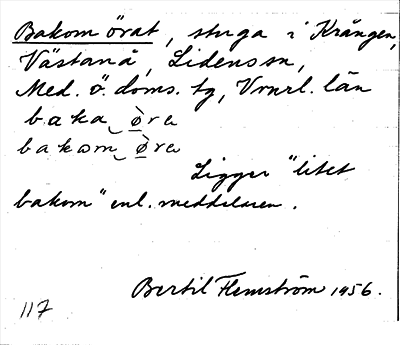 Bakom örat, stuga i Krången,
Västanå, Lidens sn,
Med. ö. doms. tg, Vnrl. län
baka‿ò̱ra
bakåm‿ò̱ra
Ligger "litet
bakom" enl. meddelaren.
Bertil Flemström 1956.
117